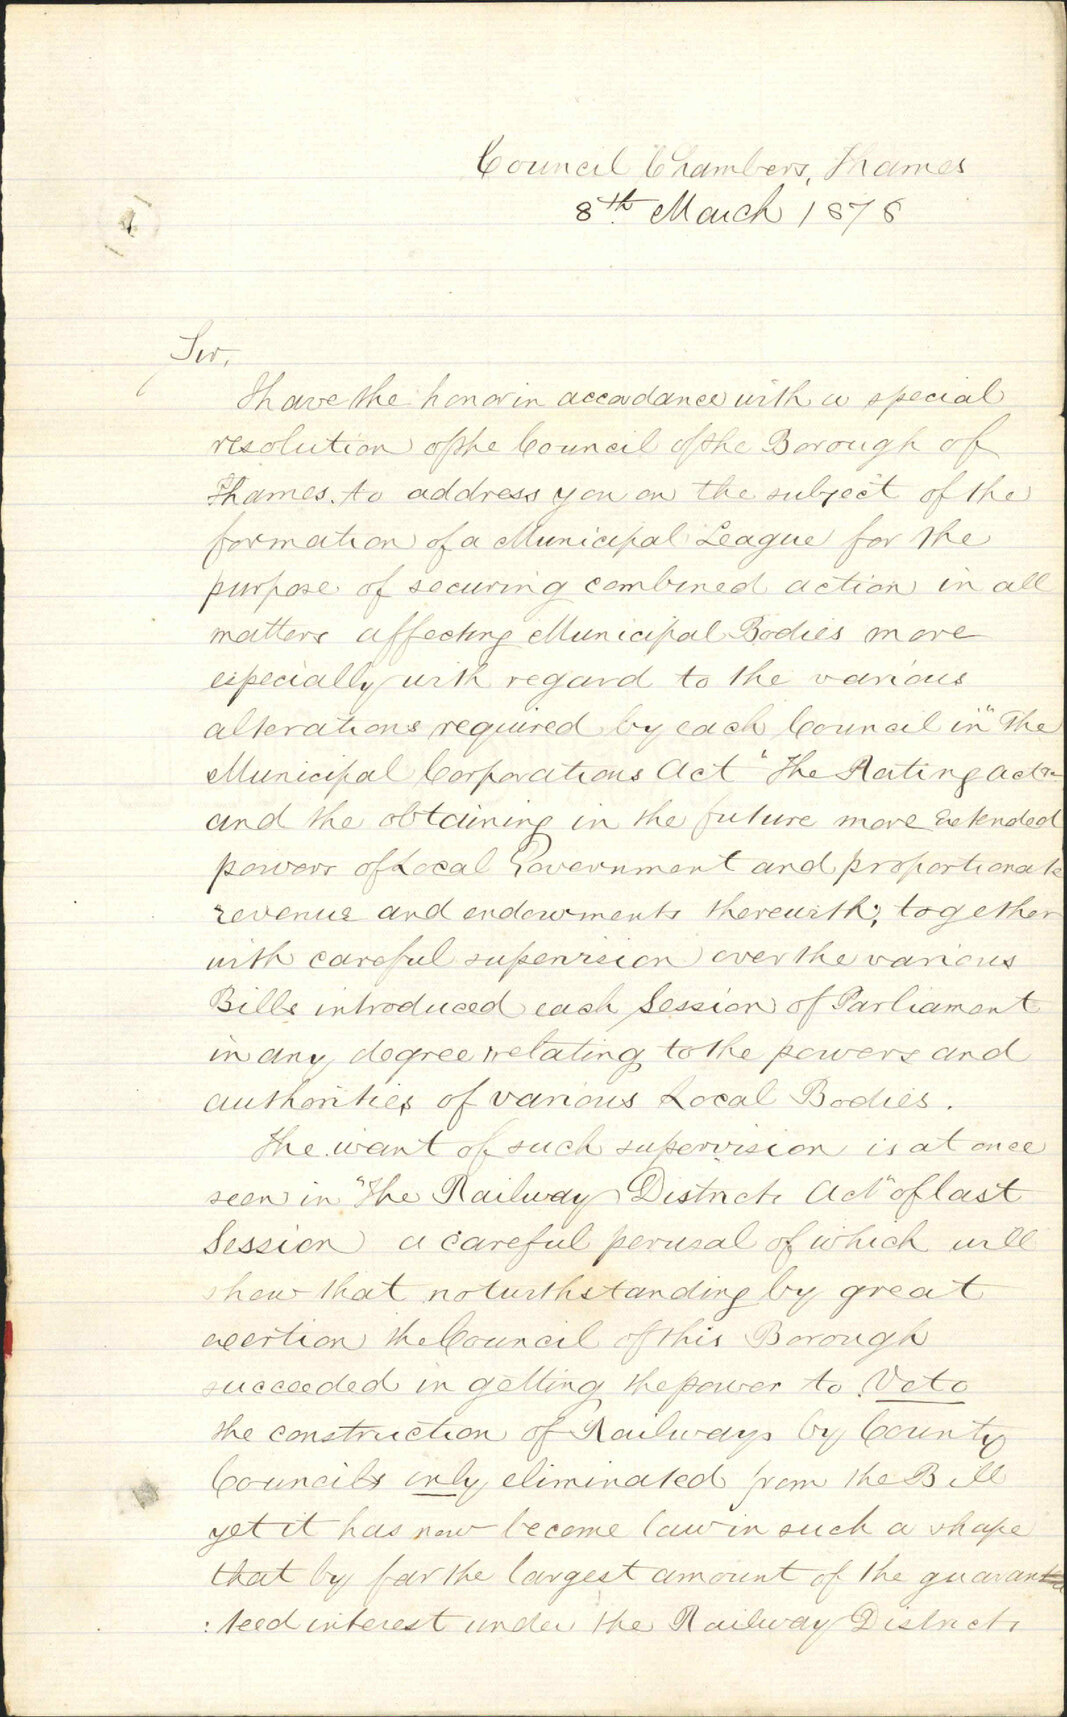 Council Chambers, Thames
8th March 1878
Sir,
I have the honor in accordance with a special
resolution of the Council of the Borough of
Thames. to address you on the subject of the
formation of a Municipal League for the
purpose of securing combined action in all
matters affecting Municipal Bodies more
especially with regard to the various
alterations required by each Council in "The
Municipal Corporations Act" "The Rating Act"
and the obtaining in the future more extended
powers of Local Government and proportionate
revenue and endowments therewith; together
with careful supervision over the various
Bills introduced each Session of Parliament
in any degree relating to the powers and
authorities of various Local Bodies.
The want of such supervision is at once
seen in "The Railway Districts Act" of last
Session a careful perusal of which will
show that notwithstanding by great
exertion the Council of this Borough
succeeded in getting the power to Veto
the construction of Railways by County
Councils only eliminated from the Bill
yet it has now become law in such a shape
that by far the largest amount of the guaran
:teed interest under the Railway Districts